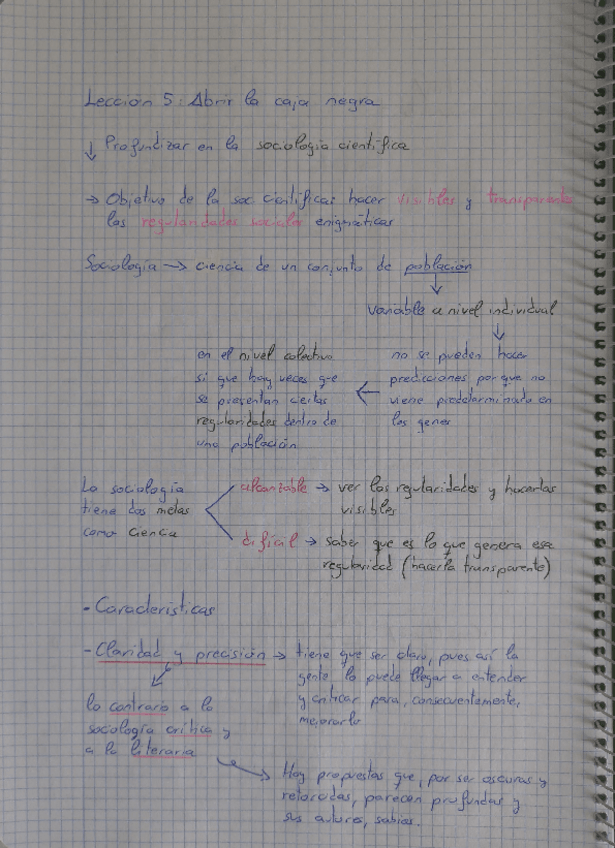 Lección 5: Abrir la caja negra
↓ Profundizar en la sociología científica
→ Objetivo de la soc científica: hacer visibles y transparente
las regularidades sociales enigmáticas
Sociología → ciencia de un conjunto de población
↓
variable a nivel individual
↓
no se pueden hacer
predicciones por que no
viene predeterminado en
los genes
←
en el nivel colectivo
si que hay veces que
se presentan ciertas
regularidades dentro de
una población
La sociología
tiene dos metas
como ciencia
alcanzable → ver las regularidades y hacerlas
visibles
difícil → saber que es lo que genera esa
regularidad (hacerla transparente)
- Características
- Claridad y precisión → tiene que ser claro, pues así la
gente lo puede llegar a entender
y criticar para, consecuentemente,
mejorarlo
lo contrario a la
sociología crítica y
a la literaria
→ Hay propuestas que, por ser oscuras y
retorcidas, parecen profundas y
sus autores, sabios.